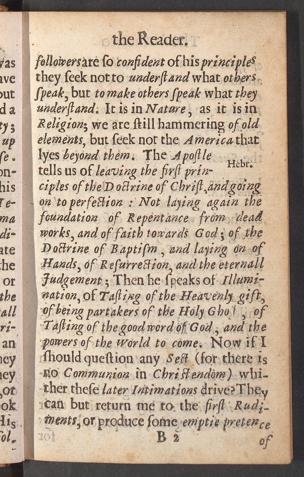 the Reader.
followers are so confident of his principles
they seek not to understand what others
speak, but to make others speak what they
understand. It is in Nature, as it is in
Religion; we are still hammering of old
elements, but seek not the America that
lyes beyond them. The Apostle
tells us of leaving the first prin- Hebr.
ciples of the Doctrine of Christ, and going
on to perfection : Not laying again the
foundation of Repentance from dead
works, and of faith towards God; of the
Doctrine of Baptism, and laying on of
Hands, of Resurrection, and the eternall
Judgement; Then he speaks of Illumi-
nation, of Tasting of the Heavenly gift,
of being partakers of the Holy Gho, of
Tasting of the good word of God, and the
powers of the World to come. Now if I
should question any Sect (for there is
no Communion in Christendom) whi-
ther these later Intimations drive? They
can but return me to the first Rudi-
ments, or produce some emptie pretence
B 2
of